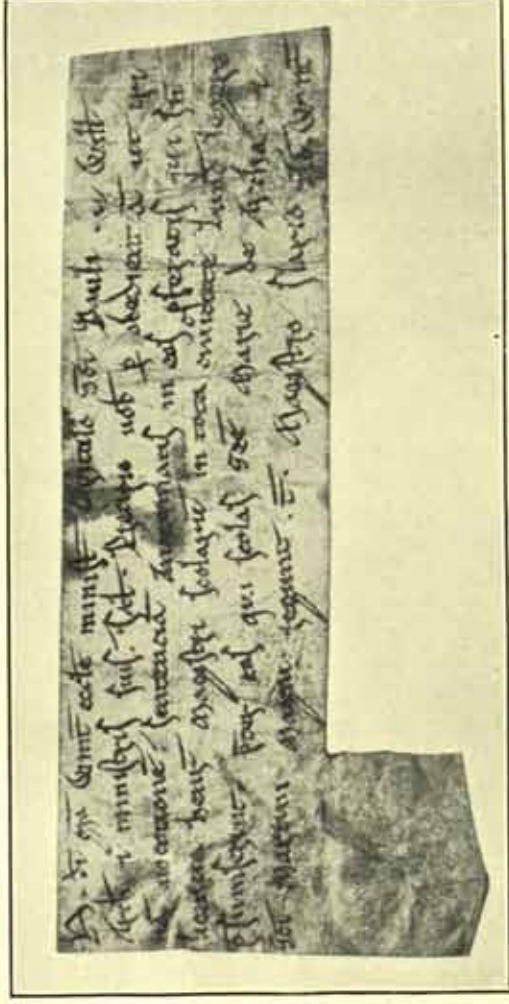 H. di gra Wint eccle minist capitulo sci Pauli & Will
archi & ministris suis sal. Precipio uob p obedientia ut tri
na uocatione sententia anathematis in eos proferatis qui sn
licentia Henr Magistri scolarum in tota ciuitate Lund legere
psumserint. Pret eos qui scolas sce Marie de Archa &
sci Martini Magni regunt. T. Magistro Ilario apd Wint